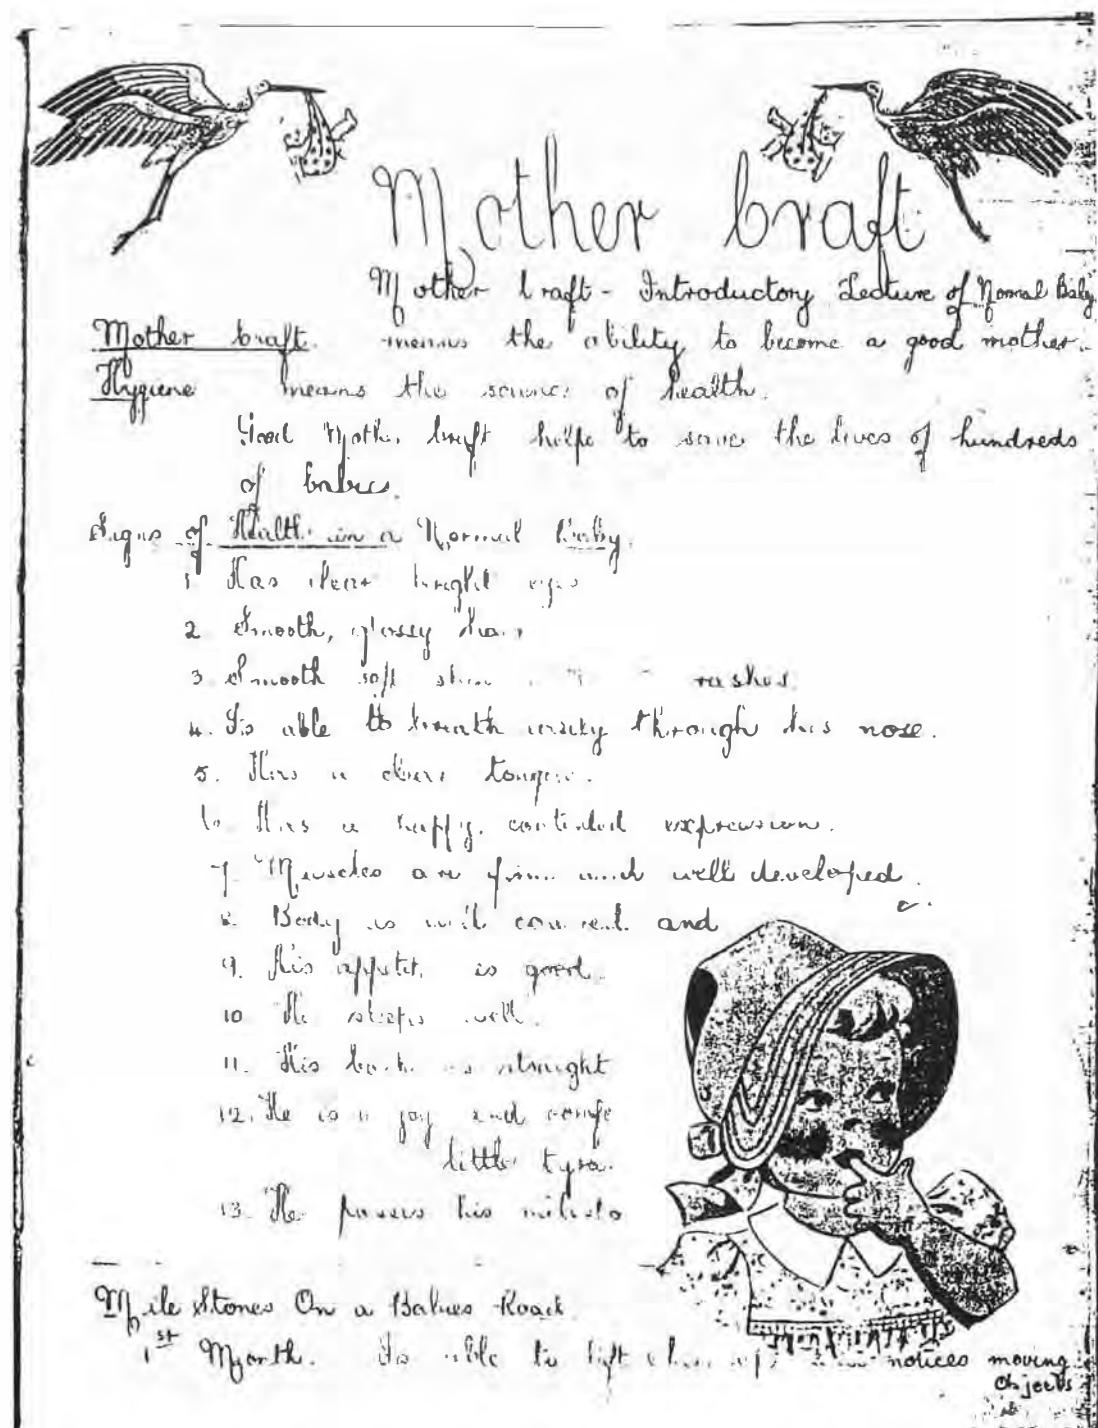 Mother craft
Mother craft - Introductory Lecture of Normal Baby
Mother craft. means the ability to become a good mother.
Hygiene means the science of health.
Good Mother craft helps to save the lives of hundreds
of babies.
Signs of Health in a Normal Baby.
1 Has clear bright eyes
2 Smooth, glossy hair
3 Smooth soft skin rashes.
4. Is able to breath easily through his nose.
5. Has a clean tongue.
6. Has a happy, contented expression.
7. Muscles are firm and well developed.
8. Body is well covered and
9. His appetite is good.
10 He sleeps well.
11. His back is straight
12. He is a joy and
little
13. He passes his
Mile Stones On a Babies Road
1st Month. Is able to lift chin up notices moving
objects